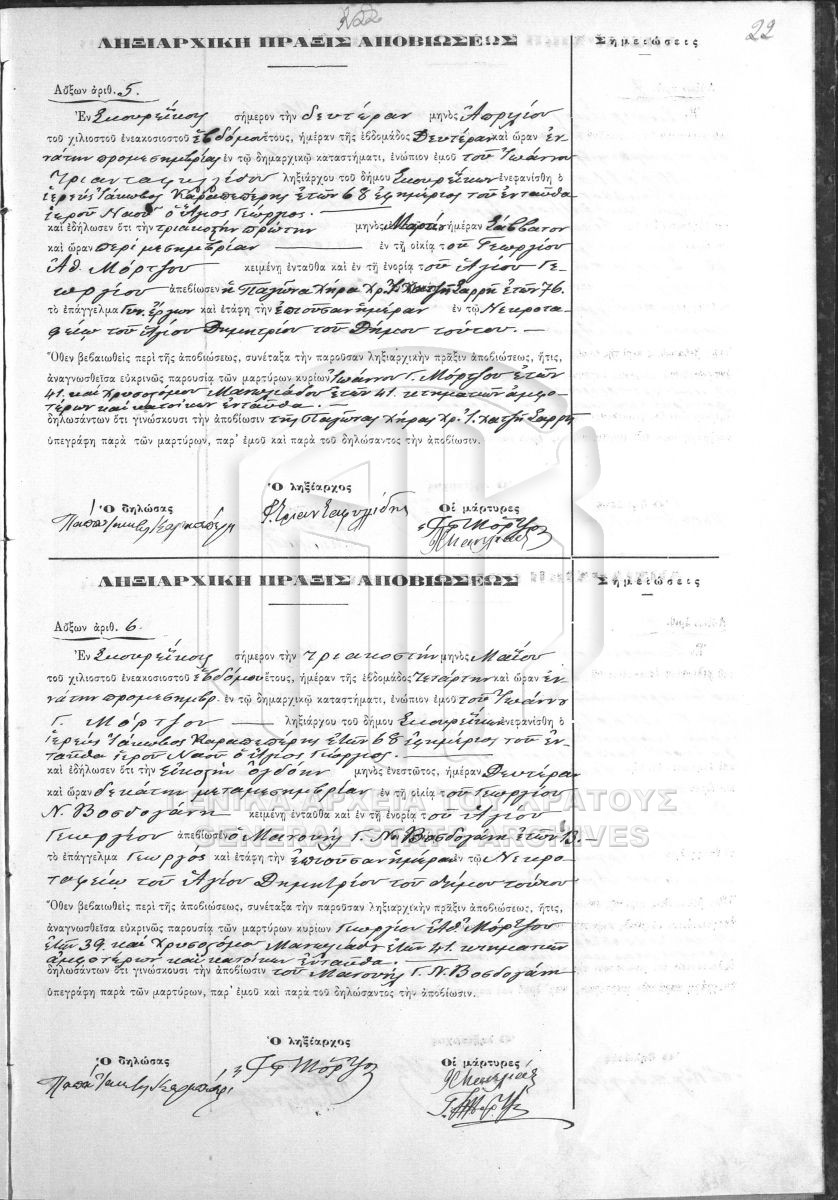 22
ΛΗΞΙΑΡΧΙΚΗ ΠΡΑΞΙΣ ΑΠΟΒΙΩΣΕΩΣ
Σημειώσεις
Αὔξων ἀριθ. 5.
Ἐν Σκουρέϊκοις σήμερον τὴν δευτέραν μηνὸς Ἀπριλίου
τοῦ χιλιοστοῦ ἐνεακοσιοστοῦ ἑβδόμου ἔτους, ἡμέραν τῆς ἑβδομάδος Δευτέραν καὶ ὥραν ἐν-
νάτην προμεσημβρίας ἐν τῷ δημαρχικῷ καταστήματι, ἐνώπιον ἐμοῦ τοῦ Ἰωάννου
Τριανταφυλλίδου ληξιάρχου τοῦ δήμου Σκουρεΐκων ἐνεφανίσθη ὁ
ἱερεὺς Ἰάκωβος Καραπεπέρης ἐτῶν 68 ἐφημέριος τοῦ ἐνταῦθα
ἱεροῦ Ναοῦ ὁ Ἅγιος Γεώργιος.
καὶ ἐδήλωσεν ὅτι τὴν τριακοστὴν πρώτην μηνὸς Μαρτίου ἡμέραν Σάββατον
καὶ ὥραν περὶ μεσημβρίαν ἐν τῇ οἰκίᾳ τοῦ Γεωργίου
Ἀθ. Μόρτζου κειμένῃ ἐνταῦθα καὶ ἐν τῇ ἐνορίᾳ τοῦ Ἁγίου Γε-
ωργίου ἀπεβίωσεν ἡ χήρα Χρ. Χατζῆ Σαρρῆ ἐτῶν 76.
τὸ ἐπάγγελμα Γυν. ἔργων καὶ ἐτάφη τὴν ἐπιοῦσαν ἡμέραν ἐν τῷ Νεκροτα-
φείῳ τοῦ Ἁγίου Δημητρίου τοῦ Δήμου τούτου.
Ὅθεν βεβαιωθεὶς περὶ τῆς ἀποβιώσεως, συνέταξα τὴν παροῦσαν ληξιαρχικὴν πρᾶξιν ἀποβιώσεως, ἥτις,
ἀναγνωσθεῖσα εὐκρινῶς παρουσίᾳ τῶν μαρτύρων κυρίων Ἰωάννου Γ. Μόρτζου ἐτῶν
41. καὶ Χρυσοστόμου Μανωλιάδου ἐτῶν 41. κτηματιῶν ἀμφο-
τέρων καὶ κατοίκων ἐνταῦθα.
δηλωσάντων ὅτι γινώσκουσι τὴν ἀποβίωσιν τῆς χήρας Χρ. Χατζῆ Σαρρῆ
ὑπεγράφη παρὰ τῶν μαρτύρων, παρ' ἐμοῦ καὶ παρὰ τοῦ δηλώσαντος τὴν ἀποβίωσιν.
Ὁ ληξίαρχος
Ὁ δηλώσας
Οἱ μάρτυρες
ΛΗΞΙΑΡΧΙΚΗ ΠΡΑΞΙΣ ΑΠΟΒΙΩΣΕΩΣ
Σημειώσεις
Αὔξων ἀριθ. 6.
Ἐν Σκουρέϊκοις σήμερον τὴν τριακοστὴν μηνὸς Μαΐου
τοῦ χιλιοστοῦ ἐνεακοσιοστοῦ ἑβδόμου ἔτους, ἡμέραν τῆς ἑβδομάδος Τετάρτην καὶ ὥραν ἐν-
νάτην προμεσημβρ. ἐν τῷ δημαρχικῷ καταστήματι, ἐνώπιον ἐμοῦ τοῦ Ἰωάννου
Γ. Μόρτζου ληξιάρχου τοῦ δήμου Σκουρεΐκων ἐνεφανίσθη ὁ
ἱερεὺς Ἰάκωβος Καραπεπέρης ἐτῶν 68 ἐφημέριος τοῦ ἐν-
ταῦθα ἱεροῦ Ναοῦ ὁ Ἅγιος Γεώργιος.
καὶ ἐδήλωσεν ὅτι τὴν εἰκοστὴν ὀγδόην μηνὸς ἐνεστῶτος, ἡμέραν Δευτέραν
καὶ ὥραν δεκάτην μεταμεσημβρίαν ἐν τῇ οἰκίᾳ τοῦ Γεωργίου
Ν. Βοσδογάνη κειμένῃ ἐνταῦθα καὶ ἐν τῇ ἐνορίᾳ τοῦ Ἁγίου
Γεωργίου ἀπεβίωσεν ὁ Μανουὴλ Γ. Ν. Βοσδογάνη ἐτῶν 13.
τὸ ἐπάγγελμα Γεωργὸς καὶ ἐτάφη τὴν ἐπιοῦσαν ἡμέραν ἐν τῷ Νεκρο-
ταφείῳ τοῦ Ἁγίου Δημητρίου τοῦ Δήμου τούτου
Ὅθεν βεβαιωθεὶς περὶ τῆς ἀποβιώσεως, συνέταξα τὴν παροῦσαν ληξιαρχικὴν πρᾶξιν ἀποβιώσεως, ἥτις,
ἀναγνωσθεῖσα εὐκρινῶς παρουσίᾳ τῶν μαρτύρων κυρίων Γεωργίου Ἀθ. Μόρτζου
ἐτῶν 39. καὶ Χρυσοστόμου Μανωλιάδου ἐτῶν 41. κτηματιῶν
ἀμφοτέρων καὶ κατοίκων ἐνταῦθα.
δηλωσάντων ὅτι γινώσκουσι τὴν ἀποβίωσιν τοῦ Μανουὴλ Γ. Ν. Βοσδογάνη
ὑπεγράφη παρὰ τῶν μαρτύρων, παρ' ἐμοῦ καὶ παρὰ τοῦ δηλώσαντος τὴν ἀποβίωσιν.
Ὁ ληξίαρχος
Ὁ δηλώσας
Οἱ μάρτυρες
ΓΕΝΙΚΑ ΑΡΧΕΙΑ ΤΟΥ ΚΡΑΤΟΥΣ
GENERAL STATE ARCHIVES